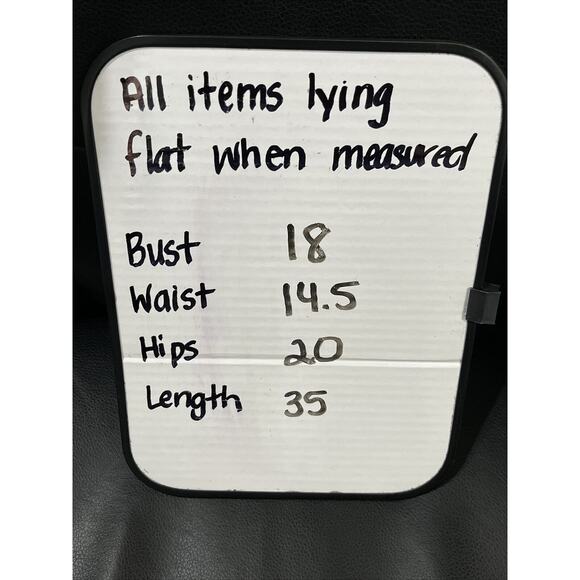 All items lying
flat when measured
Bust 18
Waist 14.5
Hips 20
Length 35